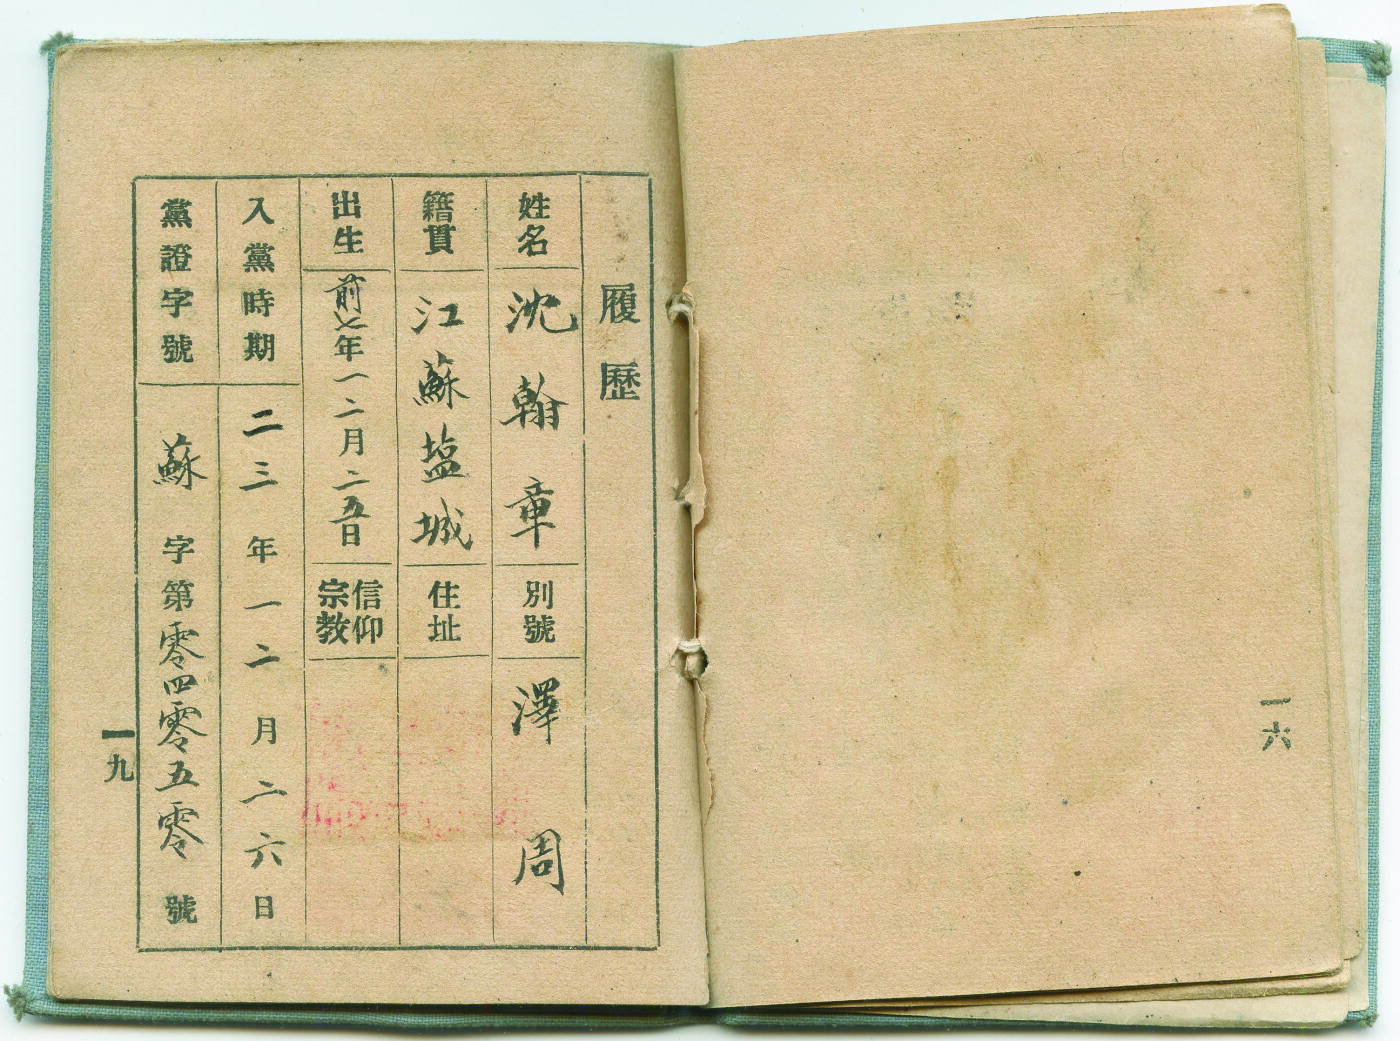 一六
履歷
姓名 沈翰章 別號 澤周
籍貫 江蘇塩城 住址
出生 前七年一二月二五日 信仰宗教
入黨時期 二三年一二月二六日
黨證字號 蘇字第零四零五零號
一九